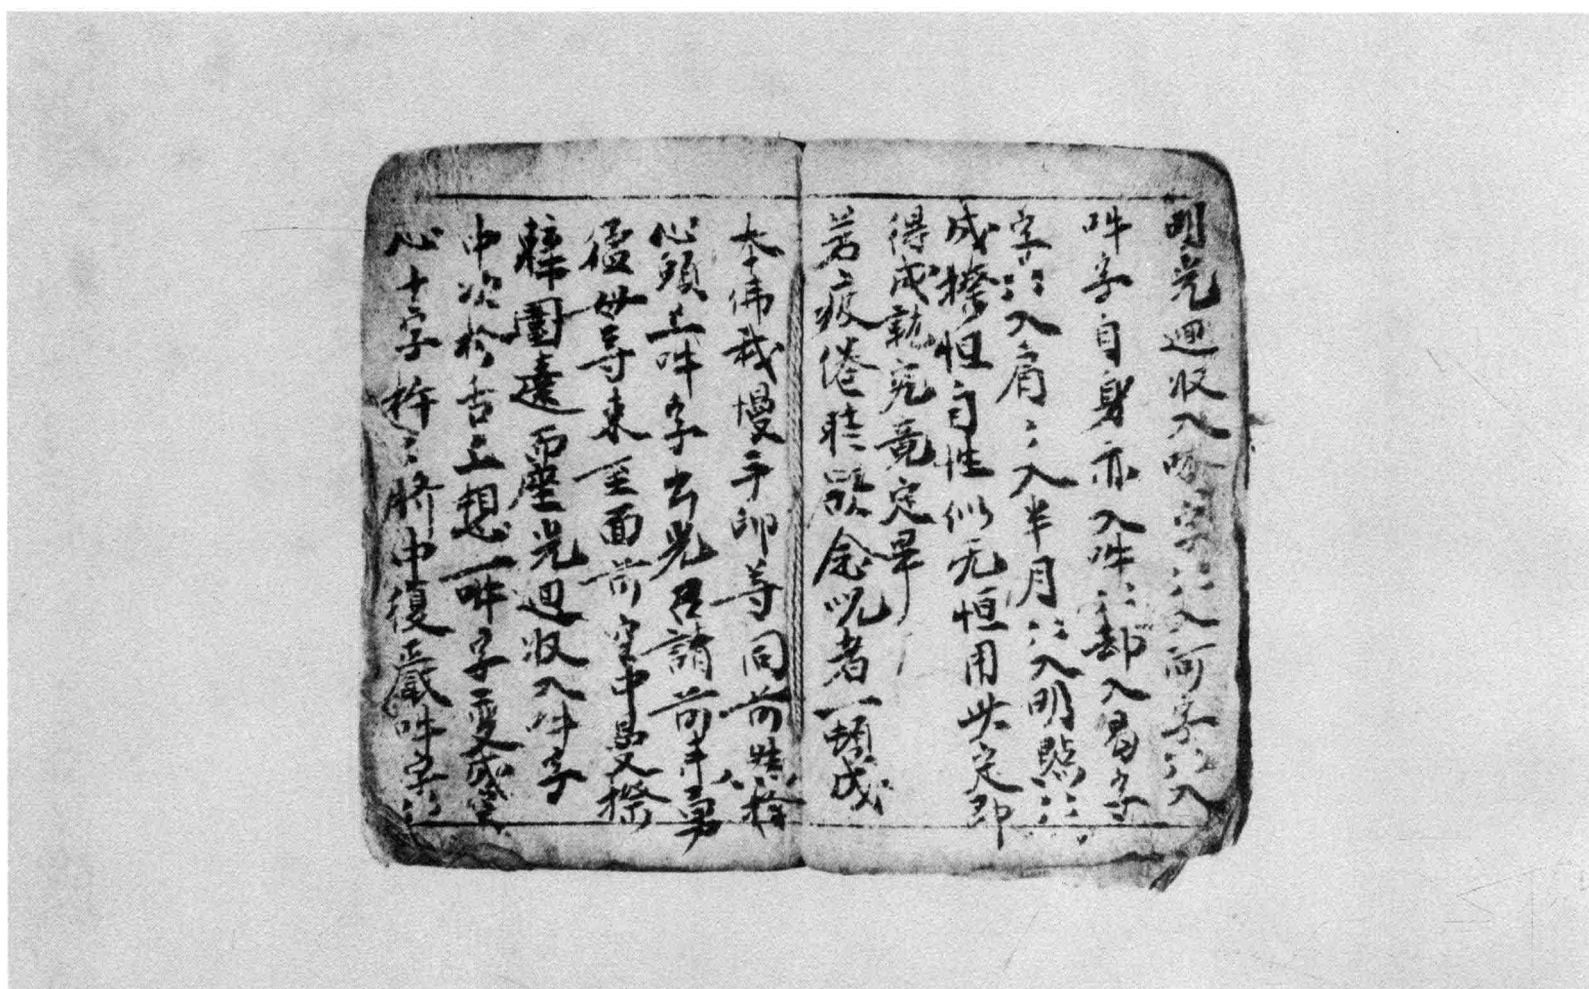 明光迴收入吽字〻〻入阿字〻〻入
吽字自身亦入吽〻〻却入曷字
字〻〻入肩〻入半月〻〻入明點〻〻
成撩怛自性似无恒用此定即
得成就究竟定畢
若疲倦時欲念呪者一頓成
本佛我慢手印等同前
心頭上吽字出光召請前勇
猛母等來至面前空中
圍遶而坐光迴收入吽字
中次於舌上想一吽字變成
心十字杵〻臍中復嚴吽字〻〻